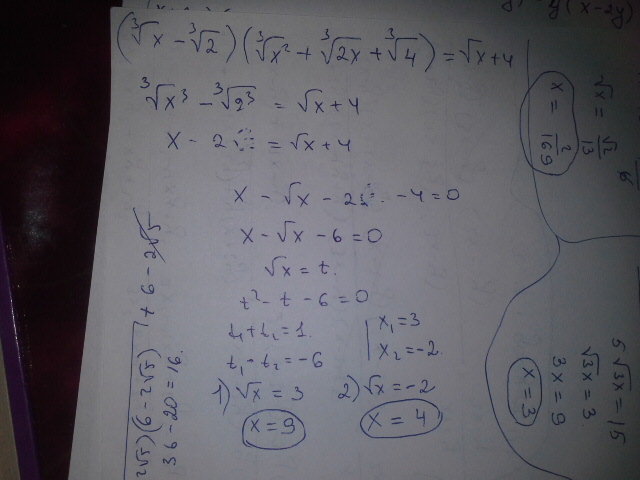 (∛x − ∛2)(∛x² + ∛2x + ∛4) = √x + 4
∛x³ − ∛2³ = √x + 4
x − 2 = √x + 4
x − √x − 2 − 4 = 0
x − √x − 6 = 0
√x = t.
t² − t − 6 = 0
t₁ + t₂ = 1.
t₁ − t₂ = −6
x₁ = 3
x₂ = −2.
1) √x = 3
x = 9
2) √x = −2
x = 4
√x = √2/13
x = 2/169
5√3x = 15
√3x = 3.
3x = 9
x = 3
2√5)(6 − 2√5) + 6 − 2√5
36 − 20 = 16.